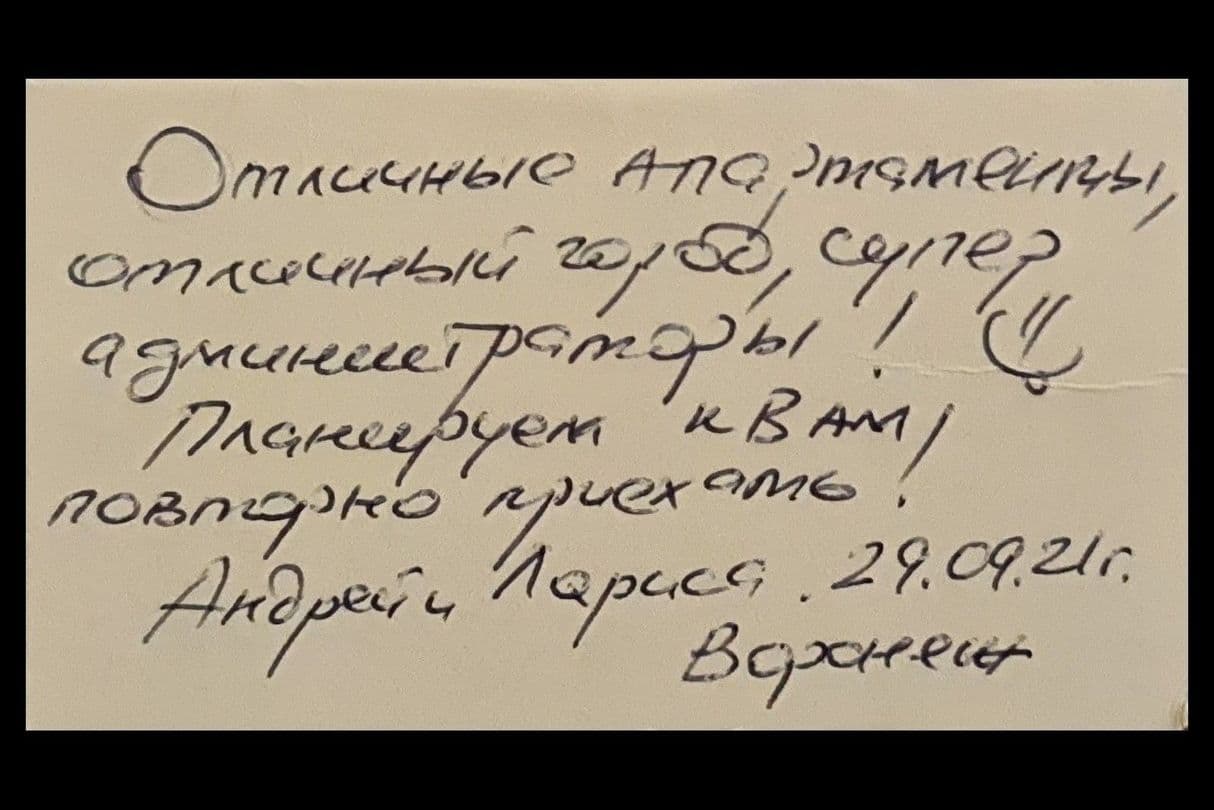 Отличные Апартаменты,
отличный город, супер
администраторы!
Планируем к ВАМ
повторно приехать!
Андрей и Лариса. 29.09.21г.
Воронеж